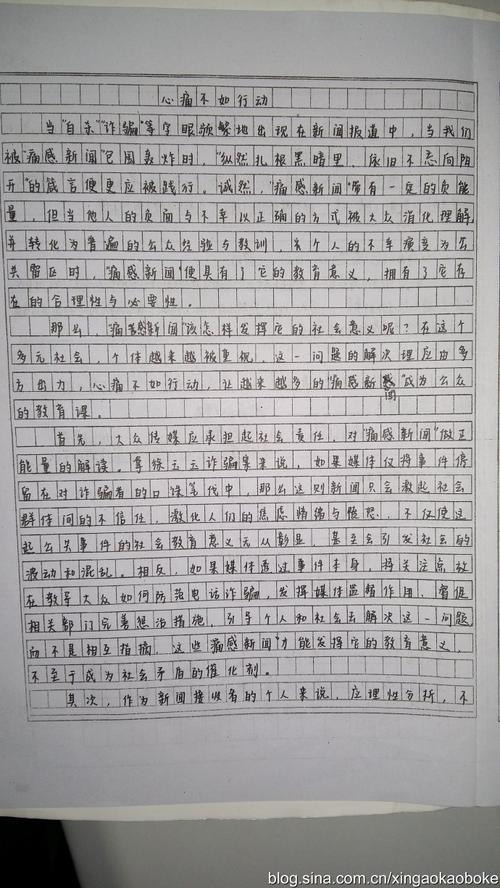 心痛不如行动
当“自杀”“诈骗”等字眼频繁地出现在新闻报道中，当我们
被“痛感新闻”包围轰炸时，“纵然扎根黑暗里，依旧不忘向阴
开”的箴言便更应被践行。诚然，“痛感新闻”带有一定的负能
量，但当他人的负面与不幸以正确的方式被大众消化理解
并转化为普遍的公众经验与教训，当个人的不幸演变为公
共语区时，“痛感新闻”便具有了它的教育意义，拥有了它存
在的合理性与必要性。
那么，“痛感新闻”该怎样发挥它的社会意义呢？在这个
多元社会，个体越来越被重视，这一问题的解决理应由多
方出力，心痛不如行动，让越来越多的“痛感新闻”成为公众
的教育课。
首先，大众传媒应承担起社会责任，对“痛感新闻”做正
能量的解读。拿徐玉玉诈骗案来说，如果媒体仅将事件停
留在对诈骗者的口诛笔伐中，那么这则新闻只会激起社会
群体间的不信任，激化人们的焦虑情绪与愤怒，不仅使这
起公共事件的社会教育意义无从彰显，甚至会引发社会的
波动和混乱。相反，如果媒体透过事件本身，将关注点放
在教导大众如何防范电话诈骗，发挥媒体监督作用，督促
相关部门完善惩治措施，引导个人和社会去解决这一问题
而不是相互指摘，这些“痛感新闻”才能发挥它的教育意义，
不至于成为社会矛盾的催化剂。
其次，作为新闻接收者的个人来说，应理性分析，不
blog.sina.com.cn/xingaokaoboke